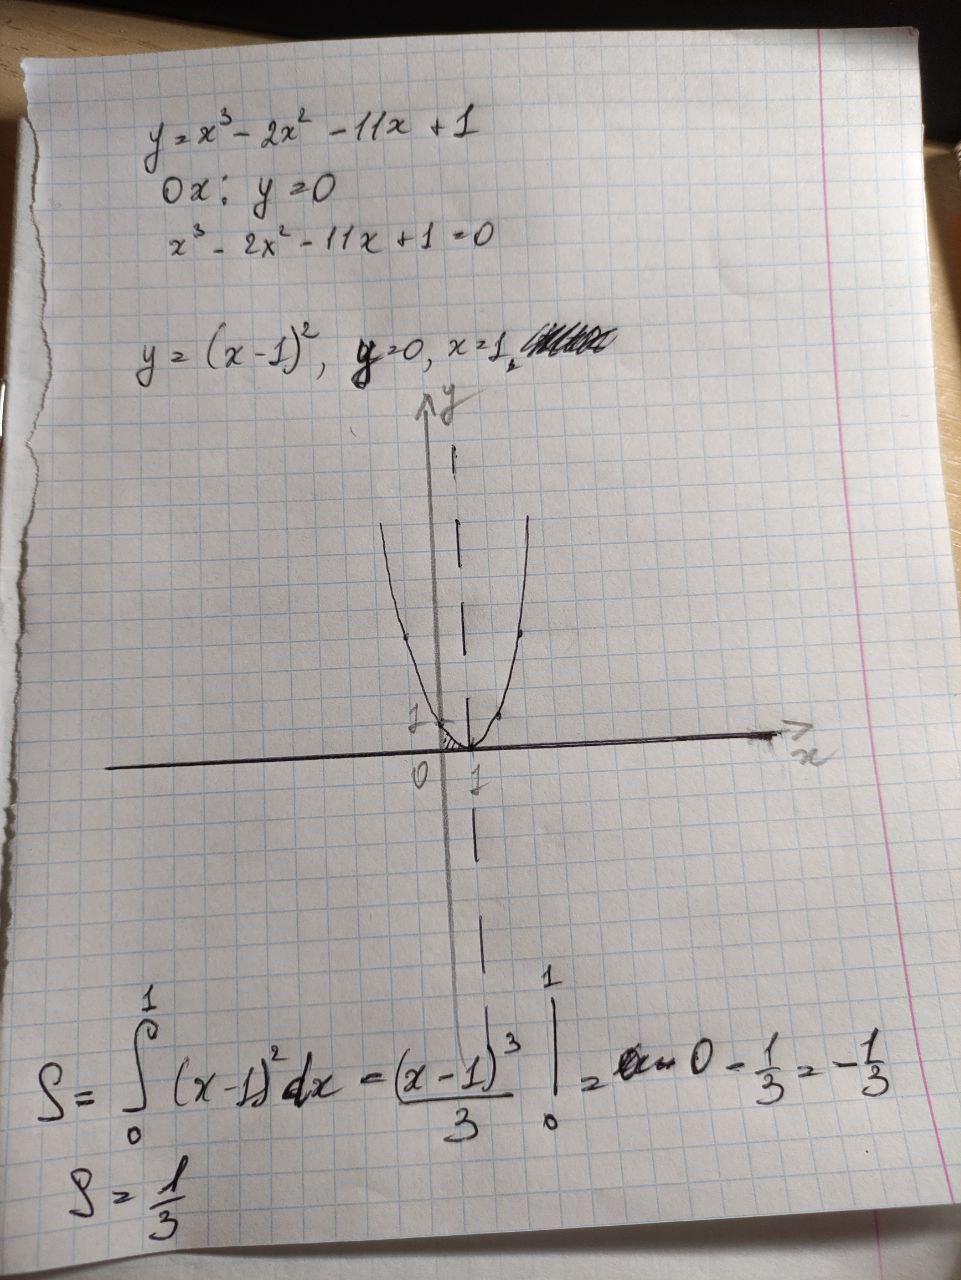 y = x³ - 2x² - 11x + 1
0x: y = 0
x³ - 2x² - 11x + 1 = 0
y = (x - 1)², y = 0, x = 1,
y
1
0 1 x
S = ∫₀¹ (x - 1)² dx = (x - 1)³/3 |₀¹ = 0 - 1/3 = - 1/3
S = 1/3